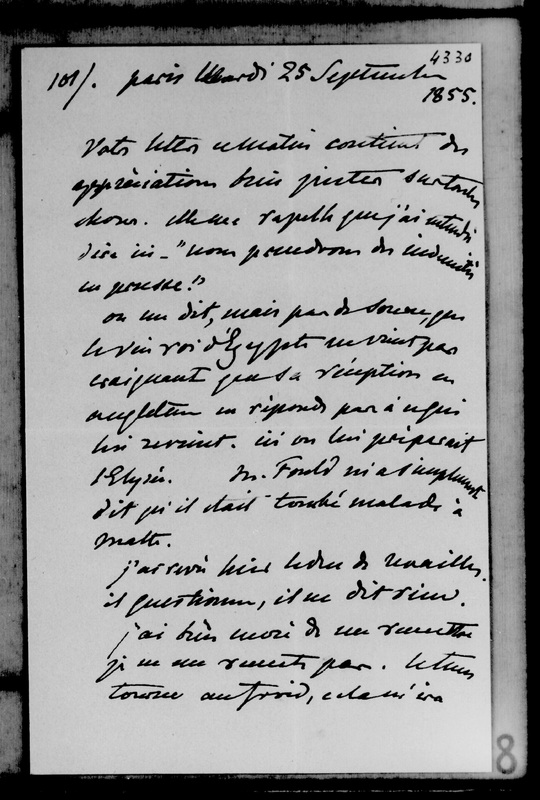 4330
101/. paris Mardi 25 Septembre
1855.
Votre lettre ce matin contient des
appréciations bien justes sur toutes
choses. Elle me rapelle que j'ai entendu
dire ici - "nous prendrons des indemnités
en prusse."
on me dit, mais pas de source, que
le vice roi d'Egypte ne vient pas
craignant que sa réception en
angleterre ne réponde pas à ce qui
lui revient. ici on lui préparait
l'Elysée. Mr. Fould m'a simplement
dit qu'il était tombé malade à
Malte.
j'ai revu hier le duc de Noailles.
il questionne, il ne dit rien.
j'ai bien envie de me remettre
je ne me remets pas. le tems
tourne au froid, cela m'ira
8